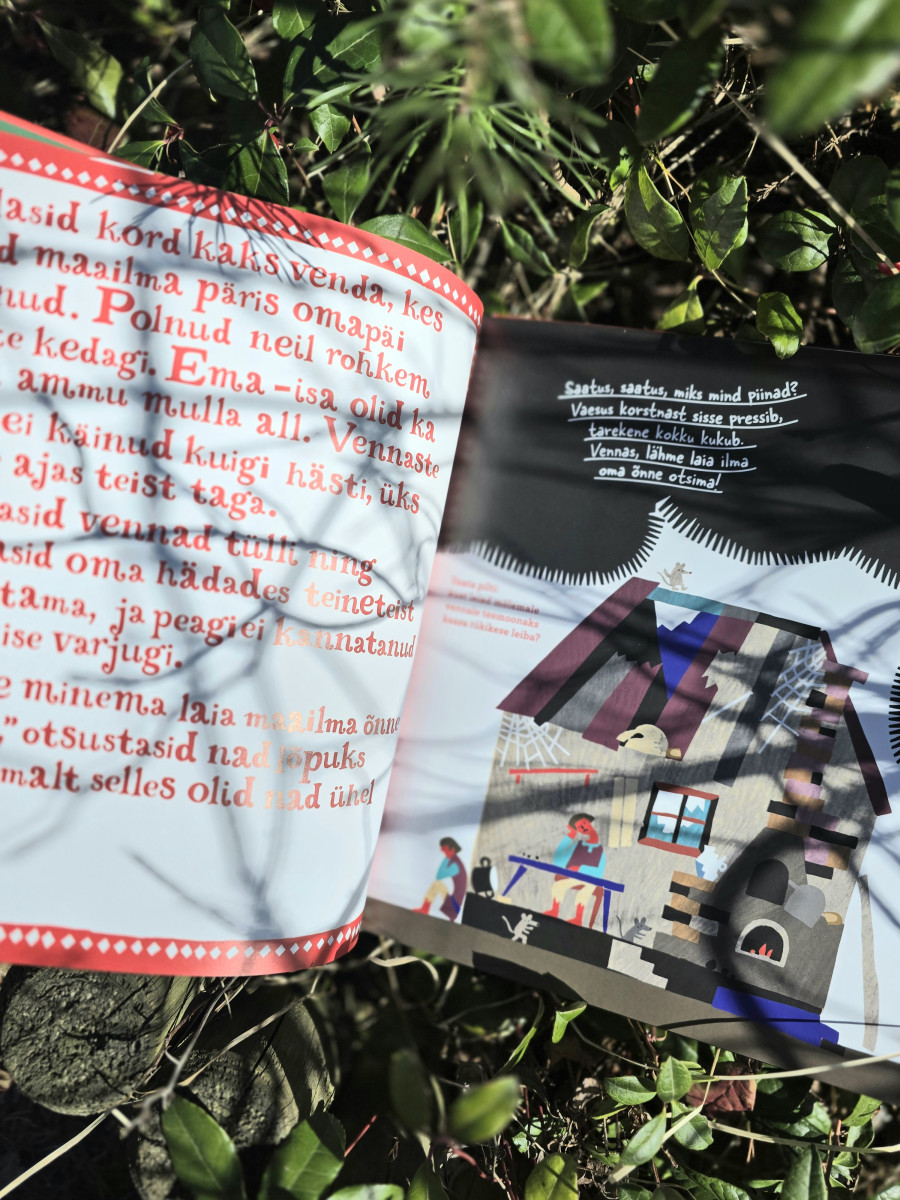 lasid kord kaks venda, kes
d maailma päris omapäi
nud. Polnud neil rohkem
te kedagi. Ema-isa olid ka
ammu mulla all. Vennaste
ei käinud kuigi hästi, üks
ajas teist taga.
asid vennad tülli ning
asid oma hädades teineteist
tama, ja peagi ei kannatanud
ise varjugi.
e minema laia maailma õnne
," otsustasid nad lõpuks
malt selles olid nad ühel
Saatus, saatus, miks mind piinad?
Vaesus korstnast sisse pressib,
tarekene kokku kukub.
Vennas, lähme laia ilma
oma õnne otsima!
Vaata pilti:
kust leiad mõlemale
vennale teemoonaks
kaasa tükikese leiba?